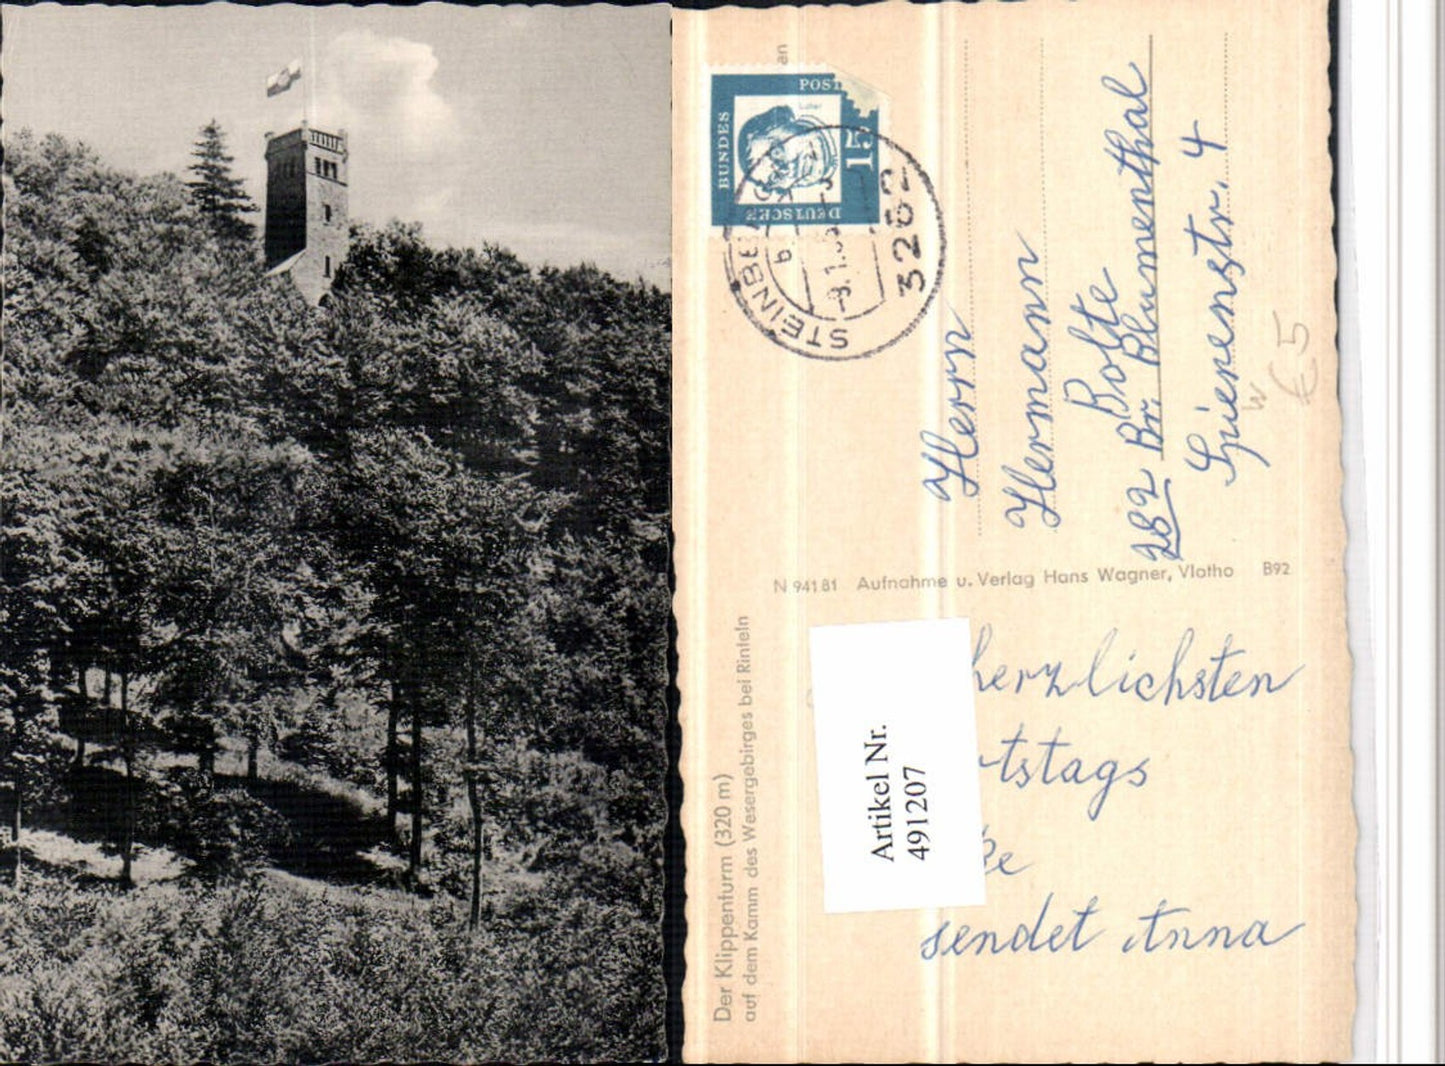 Der Klippenturm (320 m)
auf dem Kamm des Wesergebirges bei Rinteln
N 94181 Aufnahme u. Verlag Hans Wagner, Vlotho B92
DEUTSCHE
BUNDES
POST
15
Luther
STEINBE
3262
Herrn
Hermann
Bolte
282 Br. Blumenthal
Spierenstr. 4
herzlichsten
rtstags
ke
sendet Anna
Artikel Nr.
491207
€ 5
W